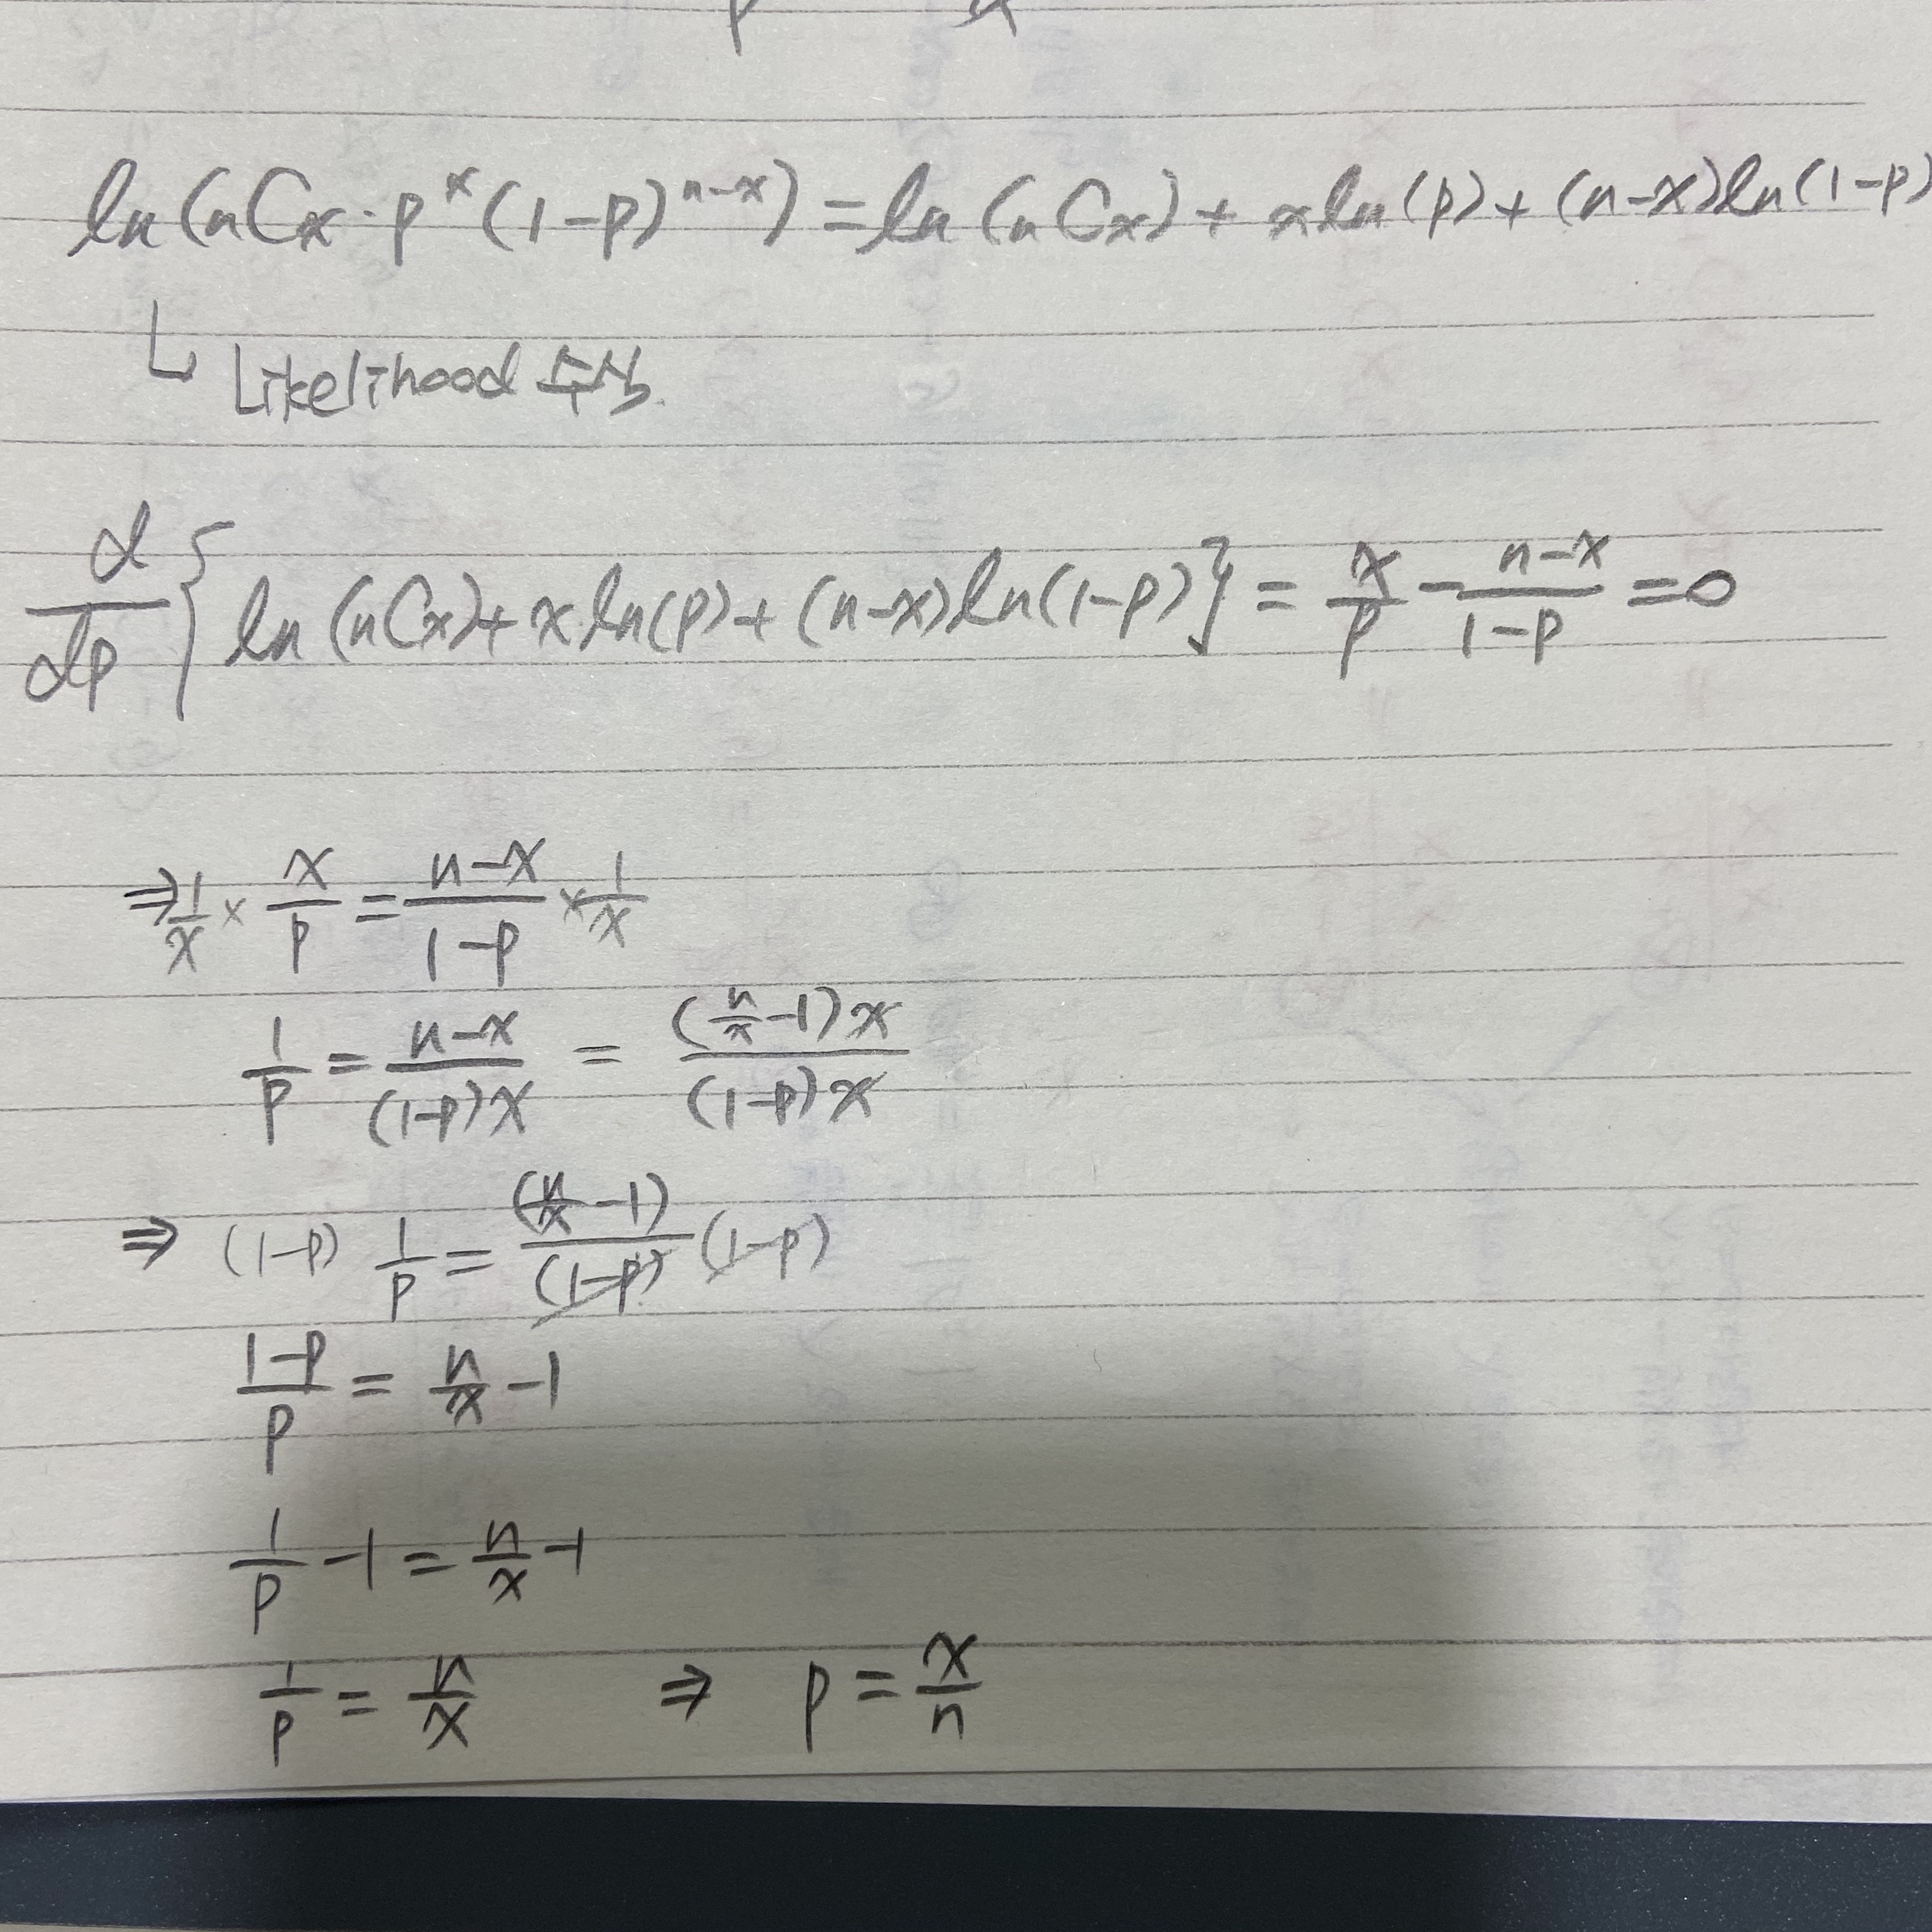 ln(nCx · p^x (1-p)^n-x) = ln(nCx) + x ln(p) + (n-x) ln(1-p)
Likelihood 수식.
d/dp { ln(nCx) + x ln(p) + (n-x) ln(1-p) } = x/p - n-x/1-p = 0
⇒ 1/x × x/p = n-x/1-p × 1/x
1/p = n-x/(1-p)x = (n/x -1)x/(1-p)x
⇒ (1-p) 1/p = (n/x -1)/(1-p) (1-p)
1-p/p = n/x -1
1/p -1 = n/x -1
1/p = n/x ⇒ p = x/n